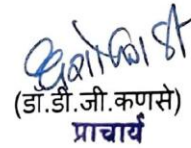 (डा.डी.जी.कणसे)
प्राचार्य